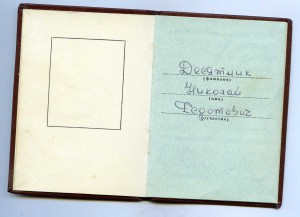 Десятник
(фамилия)
Николай
(имя)
Федотович
(отчество)